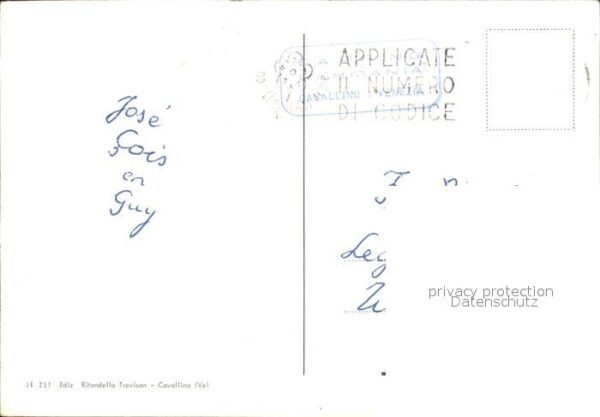 APPLICATE
IL NUMERO
DI CODICE
CAVALLINO VENEZIA
José
Lois
en
Guy
privacy protection
Datenschutz
JE 257 Ediz. Ritondella Trevison - Cavallino (Ve)